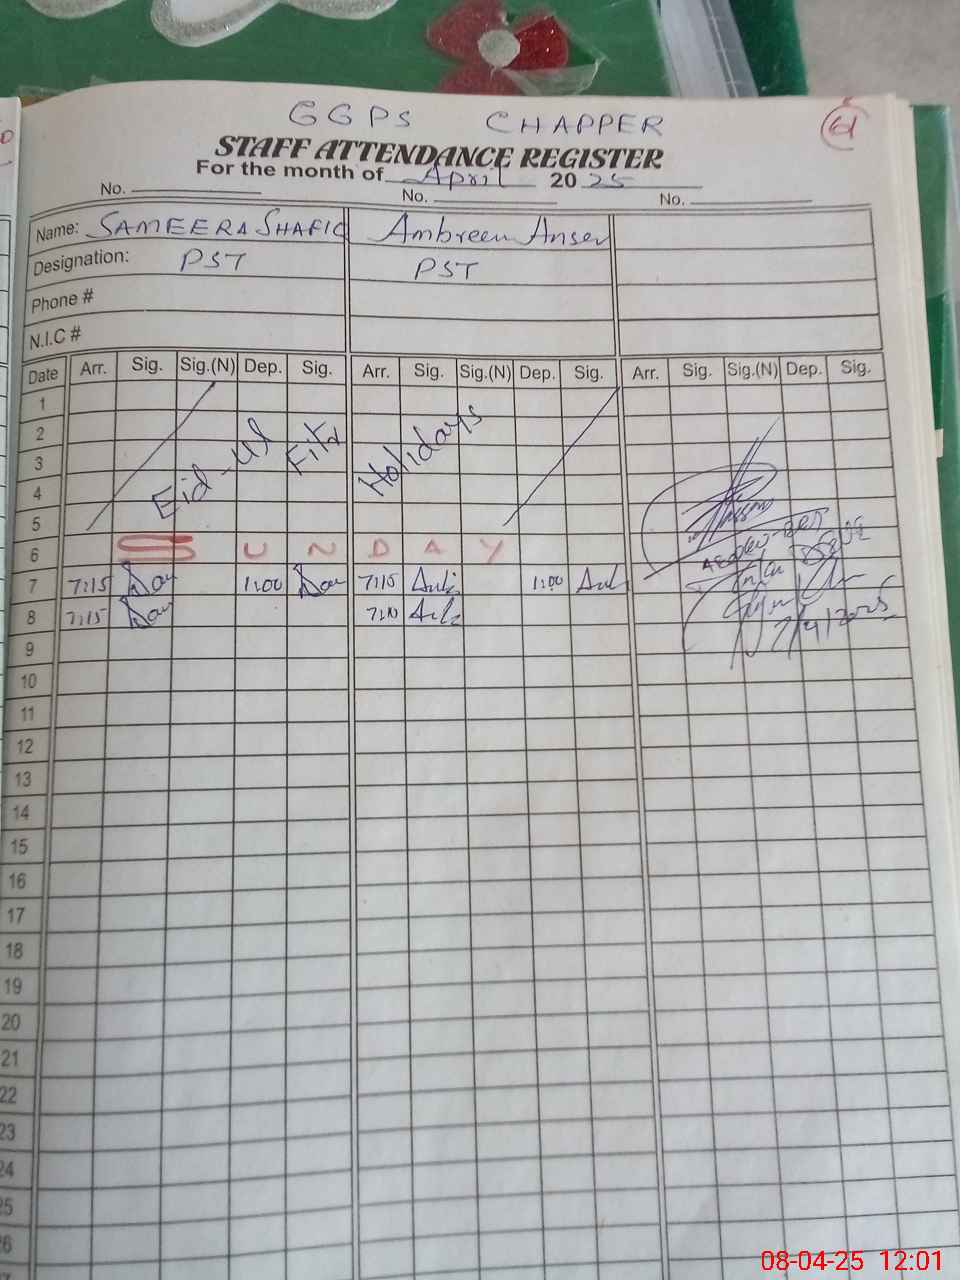 GGPS CHAPPER
61
STAFF ATTENDANCE REGISTER
For the month of April 2025
No. No. No.
Name: SAMEERA SHAFIQ Ambreen Anser
Designation: PST PST
Phone #
N.I.C #
Date Arr. Sig. Sig.(N) Dep. Sig. Arr. Sig. Sig.(N) Dep. Sig. Arr. Sig. Sig.(N) Dep. Sig.
1
2
3
4
5
Eid-Ul Fitr Holidays
6 SUNDAY
7 7:15 1:00 7:15 1:00
8 7:15 7:10
7/4/2025
9
10
11
12
13
14
15
16
17
18
19
20
21
22
23
24
25
26
27
08-04-25 12:01